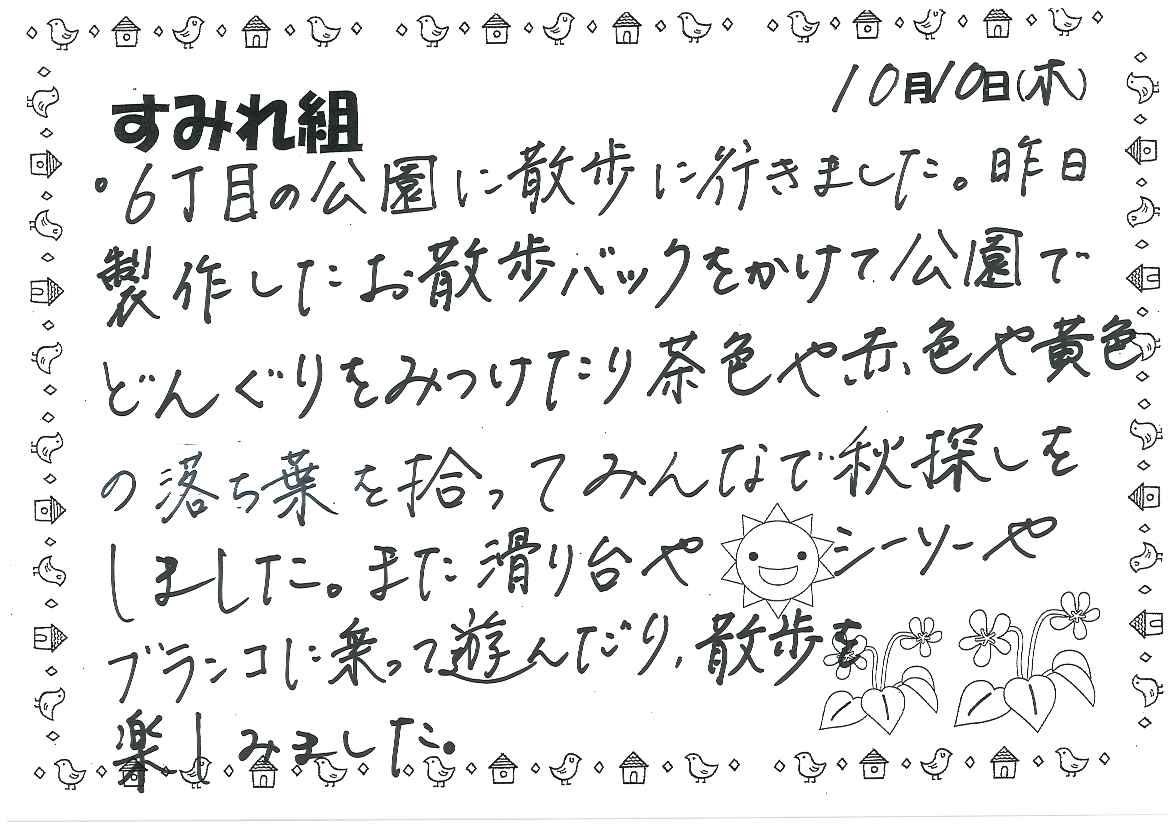 10月10日(木)
すみれ組
。6丁目の公園に散歩に行きました。昨日
製作したお散歩バックをかけて公園で
どんぐりをみつけたり茶色や赤、色や黄色
の落ち葉を拾ってみんなで秋探しを
しました。また滑り台やシーソーや
ブランコに乗って遊んだり、散歩を
楽しみました。